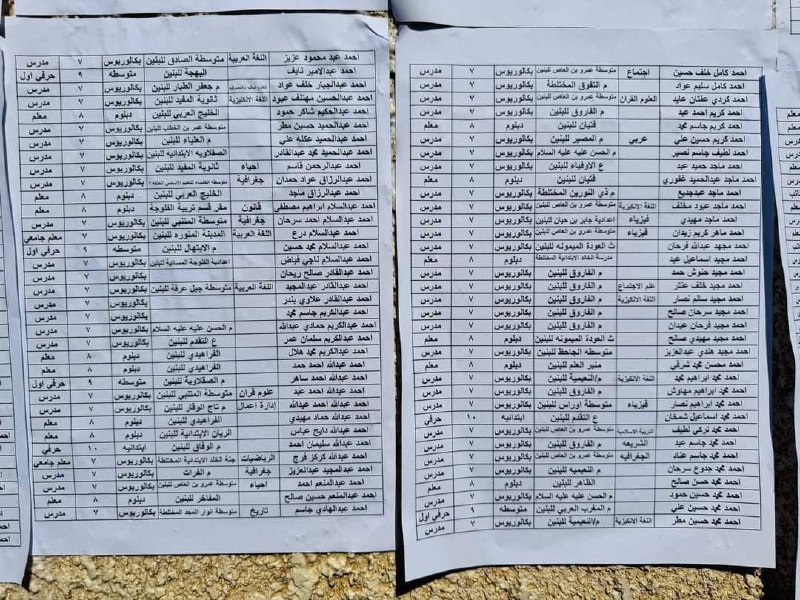 احمد كامل خلف حسين اجتماع متوسطة عمرو بن العاص للبنين بكالوريوس ٧ مدرس
احمد كامل سليم عواد م التفوق المختلطة بكالوريوس ٧ مدرس
احمد كردي عفتان عايد العلوم القران متوسطة عمرو بن العاص للبنين بكالوريوس ٧ مدرس
احمد كريم احمد عبد م الفاروق للبنين بكالوريوس ٧ مدرس
احمد كريم جاسم محمد قتيبان للبنين دبلوم ٨ معلم
احمد كريم حسين علي عربي م المصير للبنين بكالوريوس ٧ مدرس
احمد لطيف جاسم نصير م الحسن عليه السلام بكالوريوس ٧ مدرس
احمد ماجد حميد عبد ع الاوفياء للبنين بكالوريوس ٧ مدرس
احمد ماجد عبدالحميد غفوري قتيبان للبنين دبلوم ٨ معلم
احمد ماجد عبدجديع م ذي النورين المختلطة بكالوريوس ٧ مدرس
احمد ماجد عبود مخلف اللغة الانكليزية متوسطة عمرو بن العاص للبنين بكالوريوس ٧ مدرس
احمد ماجد مهيدي فيزياء اعدادية جابر بن حيان للبنين بكالوريوس ٧ مدرس
احمد ماهر كريم زيدان فيزياء متوسطة عمرو بن العاص للبنين بكالوريوس ٧ مدرس
احمد مجهد عبدالله فرحان ث العودة الميمونه للبنين بكالوريوس ٧ مدرس
احمد مجيد اسماعيل عبد مدرسة الخالد الابتدائية المختلطة دبلوم ٨ معلم
احمد مجيد حنوش حمد م الفاروق للبنين بكالوريوس ٧ مدرس
احمد مجيد خلف عنتر علم الاجتماع م الفاروق للبنين بكالوريوس ٧ مدرس
احمد مجيد سالم نصار اللغة الانكليزية م الفاروق للبنين بكالوريوس ٧ مدرس
احمد مجيد سرحان صالح م الفاروق للبنين بكالوريوس ٧ مدرس
احمد مجيد فرحان عبدان م الفاروق للبنين بكالوريوس ٧ مدرس
احمد مجيد مهيدي صالح ث العودة الميمونه للبنين دبلوم ٨ معلم
احمد مجيد هندي عبدالعزيز متوسطه الجاحظ للبنين بكالوريوس ٧ مدرس
احمد محسن محمد شرقي منير العلم للبنين دبلوم ٨ معلم
احمد محمد ابراهيم محمد اللغة الانكليزية م/النعيمية للبنين بكالوريوس ٧ مدرس
احمد محمد ابراهيم مهاوش م الفاروق للبنين بكالوريوس ٧ مدرس
احمد محمد ابراهيم نصار فيزياء متوسطة اوراس للبنين بكالوريوس ٧ مدرس
احمد محمد اسماعيل شمخان ع التقدم للبنين ابتدائيه ١٠ حرفي
احمد محمد تركي لطيف التربية الاسلامية متوسطة عمرو بن العاص للبنين بكالوريوس ٧ مدرس
احمد محمد جاسم عبد الشريعه م الفاروق للبنين بكالوريوس ٧ مدرس
احمد محمد جاسم عناد الجغرافيه متوسطة عمرو بن العاص للبنين بكالوريوس ٧ مدرس
احمد محمد جدوع سرحان م النعيميه للبنين بكالوريوس ٧ مدرس
احمد محمد حسن صالح الظاهر للبنين دبلوم ٨ معلم
احمد محمد حسين حمود م الحسن عليه السلام للبنين بكالوريوس ٧ مدرس
احمد محمد حسين علي م المغرب العربي للبنين متوسطه ٩ حرفي اول
احمد محمد حسين مطر اللغة الانكليزية م/النعيمية للبنين بكالوريوس ٧ مدرس
احمد عبد محمود عزيز اللغة العربية متوسطة الصادق للبنين بكالوريوس ٧ مدرس
احمد عبدالامير نايف البهجة للبنين متوسطه ٩ حرفي اول
احمد عبدالجبار خلف عواد م جعفر الطيار للبنين بكالوريوس ٧ مدرس
احمد عبدالحسين مهتلف عبود اللغة الانكليزية ثانوية المفيد للبنين بكالوريوس ٧ مدرس
احمد عبدالحكيم شاكر حمود الخليج العربي للبنين دبلوم ٨ معلم
احمد عبدالحميد حسين مطر متوسطة عمر بن الخطاب للبنين بكالوريوس ٧ مدرس
احمد عبدالحميد عكله علي م العلياء للبنين بكالوريوس ٧ مدرس
احمد عبدالحميد محمد عبدالقادر الصقلاويه الابتدائيه للبنين بكالوريوس ٧ مدرس
احمد عبدالرحمن قاسم احياء ثانوية المفيد للبنين بكالوريوس ٧ مدرس
احمد عبدالرزاق عواد حمدان جغرافية بكالوريوس ٧ مدرس
احمد عبدالرزاق ماجد الخليج العربي للبنين دبلوم ٨ معلم
احمد عبدالسلام ابراهيم مصطفى قانون مقر قسم تربية الفلوجة بكالوريوس ٨ معلم
احمد عبدالسلام احمد سرحان جغرافية متوسطة المتنبي للبنين بكالوريوس ٧ مدرس
احمد عبدالسلام درع اللغة العربية المدينه المنوره للبنين بكالوريوس ٧ معلم جامعي
احمد عبدالسلام محمد حسين م الابتهال للبنين متوسطه ٩ حرفي اول
احمد عبدالسلام ناجي فياض اعدادية الفلوجة المسائية للبنين بكالوريوس ٧ مدرس
احمد عبدالقادر صالح ريحان بكالوريوس ٧ مدرس
احمد عبدالقادر عبدالمجيد اللغة العربية متوسطة جبل عرفة للبنين بكالوريوس ٧ مدرس
احمد عبدالقادر علاوي بندر بكالوريوس ٧ مدرس
احمد عبدالكريم جاسم محمد بكالوريوس ٧ مدرس
احمد عبدالكريم حمادي عبدالله م الحسن عليه السلام بكالوريوس ٧ مدرس
احمد عبدالكريم سلمان عمر ع التقدم للبنين بكالوريوس ٧ مدرس
احمد عبدالكريم محمد هلال الفراهيدي للبنين دبلوم ٨ معلم
احمد عبدالله احمد حمد الفراهيدي للبنين دبلوم ٨ معلم
احمد عبدالله احمد ساهر م الصقلاوية للبنين متوسطه ٩ حرفي اول
احمد عبدالله احمد عبد علوم قران متوسطة المتنبي للبنين بكالوريوس ٧ مدرس
احمد عبدالله احمد عبدالله إدارة اعمال م تاج الوقار للبنين بكالوريوس ٧ مدرس
احمد عبدالله حماد مهيدي الفراهيدي للبنين دبلوم ٨ معلم
احمد عبدالله دايح عباس الريان الابتدائية للبنين دبلوم ٨ معلم
احمد عبدالله سليمان احمد م الوفاق للبنين ابتدائيه ١٠ حرفي
احمد عبدالله كركز فرج الرياضيات جنة الخلد الابتدائية المختلطة بكالوريوس ٧ معلم جامعي
احمد عبدالمجيد عبدالعزيز جغرافية م الفرات بكالوريوس ٧ مدرس
احمد عبدالمنعم احمد احياء متوسطة عمرو بن العاص للبنين بكالوريوس ٧ مدرس
احمد عبدالمنعم حسين صالح المفاخر للبنين دبلوم ٨ معلم
احمد عبدالهادي جاسم تاريخ متوسطة انوار المجد المختلطة بكالوريوس ٧ مدرس